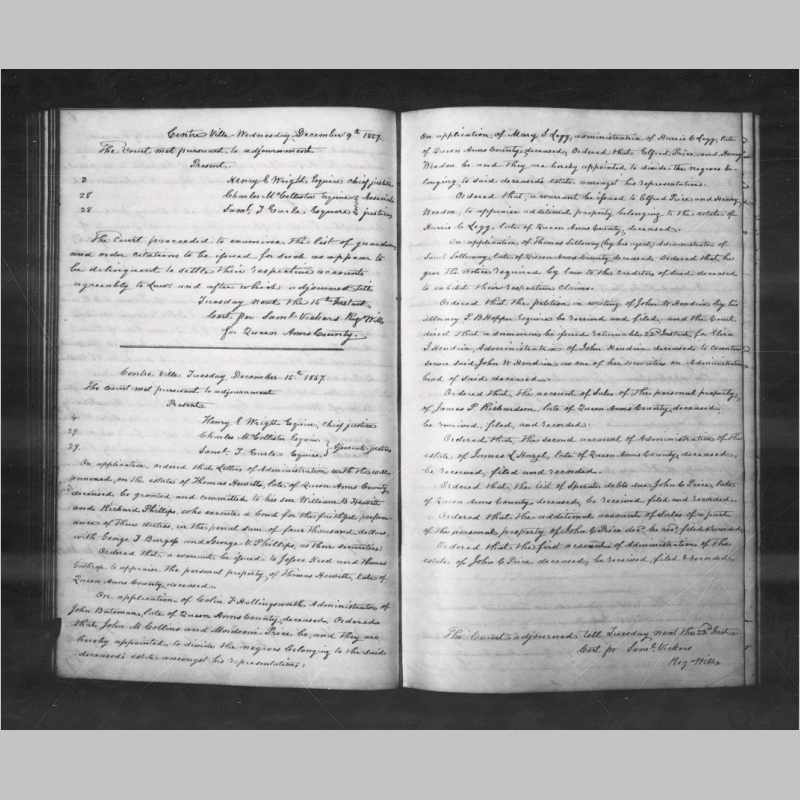 Centre Ville Wednesday December 9th 1857.
The Court met pursuant to adjournment
Present
3 Henry C Wright Esquire chief justice
28 Charles McCollister Esquire } Associate
28 Saml. T Earle Esquire } justices
The Court proceeded to examine the list of guardians
and order citations to be issued for such as appear to
be delinquent to settle their respective accounts
agreably to Law and after which adjourned till
Tuesday next the 15th Instant
Cert. pr Saml. Vickers Reg. Wills
for Queen Anns County.
Centre Ville Tuesday December 15th 1857.
The Court met pursuant to adjournment
Present
4 Henry C Wright Esquire chief justice
29 Charles McCollister Esquire
29 Saml. T Earle Esquire } justices
On application ordered that Letters of Administration with the will
annexed, on the estate of Thomas Hewitt, late of Queen Anns County
deceased be granted and committed to his son William B Hewitt
and Richard Phillips, who executed a bond for the faithful perform
ance of their duties, in the penal sum of four thousand dollars,
with George T Burgess and George W Phillips, as their securities
Ordered that a warrant be issued to Jesse Reed and Thomas
to appraise the personal property of Thomas Hewitt, late of
Queen Anns County deceased.
On application of Colin F Hollingsworth, Administrator of
John Bateman, late of Queen Anns County, deceased, Ordered
that John M Collins and Price be, and they are
hereby appointed to divide the negroes belonging to the said
deceased's estate amongst his representatives.
On application, of Mary S Legg, administratrix of Harris C Legg, late
of Queen Anns County, deceased, Ordered that Elfred Price and Henry
be and they are hereby appointed to divide the negroes be
longing to said deceased's estate amongst his representatives.
Ordered that, a warrant be issued to Elfred Price and Henry
to appraise additional property belonging to the estate of
Harris C Legg, late of Queen Anns County, deceased.
On application of Thomas Silloway (by his agent) Administrator of
Saml Silloway, late of Queen Anns County deceased, Ordered that, he
give the notice required by law to the creditors of said deceased
to exhibit their respective claims.
Ordered that the petition in writing of John W Hendrix by his
attorney P B Hopper Esquire be received and filed, and the Court
direct that a summons be issued returnable 22d Instant, for Eliza
J Hendrix, Administratrix of John Hendrix deceased to counter
secure said John W Hendrix as one of her securities on Administration
bond of said deceased.
Ordered that the account of Sales of the personal property,
of James P Richardson, late of Queen Anns County, deceased,
be received, filed, and recorded.
Ordered that the second account of Administration of the
estate of James L , late of Queen Anns County, deceased,
be received, filed and recorded.
Ordered that, the list of Sperate debts due John C Price, late
of Queen Anns County, deceased, be received filed and recorded.
Ordered that the additional account of Sales of a part
of the personal property of John C Price decd. be recd. filed & recorded
Ordered that the first account of Administration of the
estate of John C Price deceased, be received, filed & recorded
The Court adjourned till Tuesday next the 22d Inst.
Cert. pr Saml. Vickers
Reg. Wills